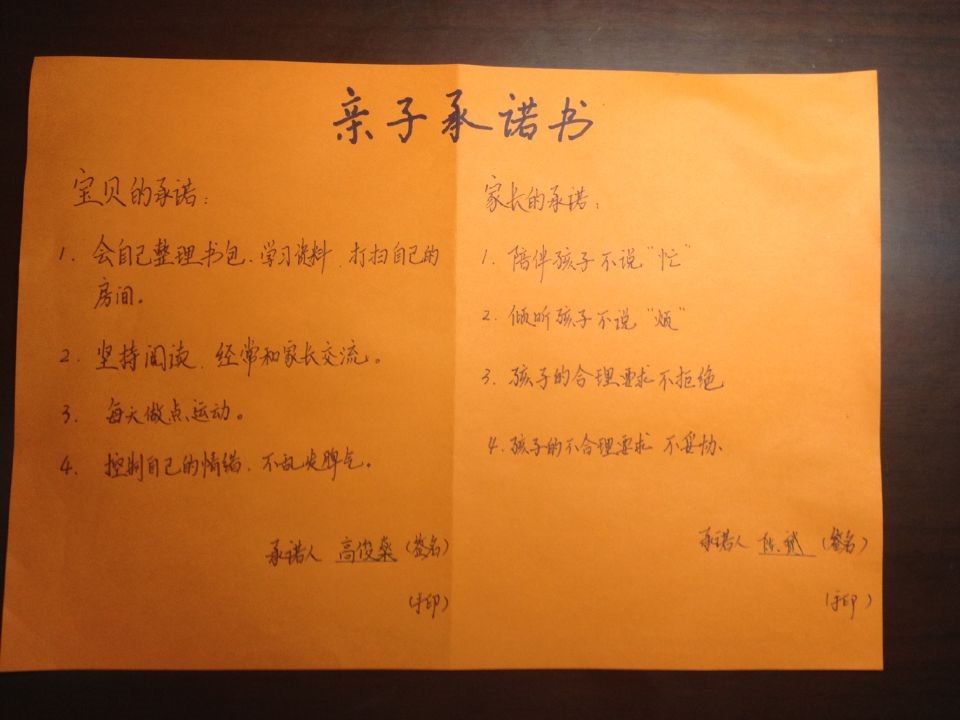 亲子承诺书
宝贝的承诺：
1. 会自己整理书包、学习资料、打扫自己的
房间。
2. 坚持阅读、经常和家长交流。
3. 每天做点运动。
4. 控制自己的情绪、不乱发脾气。
承诺人 高俊桑（签名）
（手印）
家长的承诺：
1. 陪伴孩子不说“忙”
2. 倾听孩子不说“烦”
3. 孩子的合理要求不拒绝
4. 孩子的不合理要求 不妥协、
承诺人 陈斌（签名）
（手印）